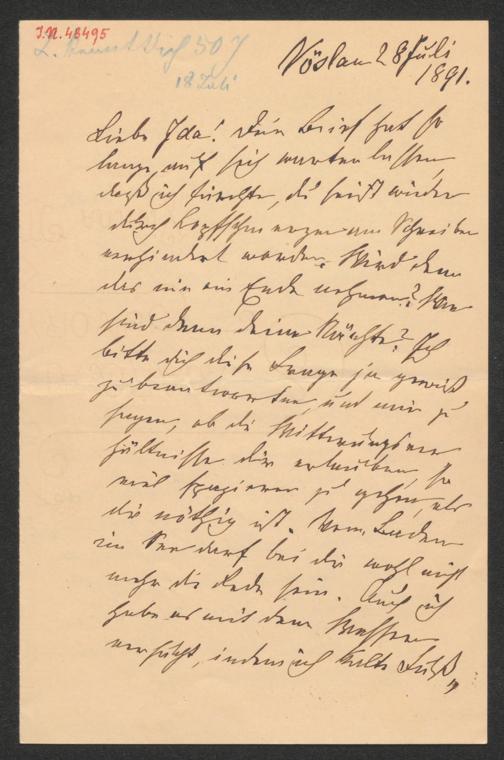 J.N. 48495
50 J
18 Juli
Vöslau 28 Juli
1891.
Liebe Ida! Dein Brief hat so
lange auf sich warten lassen,
daß ich fürchte, du seist wieder
durch Kopfschmerzen am Schreiben
verhindert worden. Wird denn
das nie ein Ende nehmen? Wie
sind denn deine Nächte? Ich
bitte dich diese Frage ja gewiß
zu beantworten, und mir zu
sagen, ob die Witterungsver
hältnisse dir erlauben, so
viel spazieren zu gehen, als
dir nöthig ist. Vom Baden
im See darf bei dir wohl nicht
mehr die Rede sein. Auch ich
habe es mit dem Wasser
versucht, indem ich kalte Fuß„